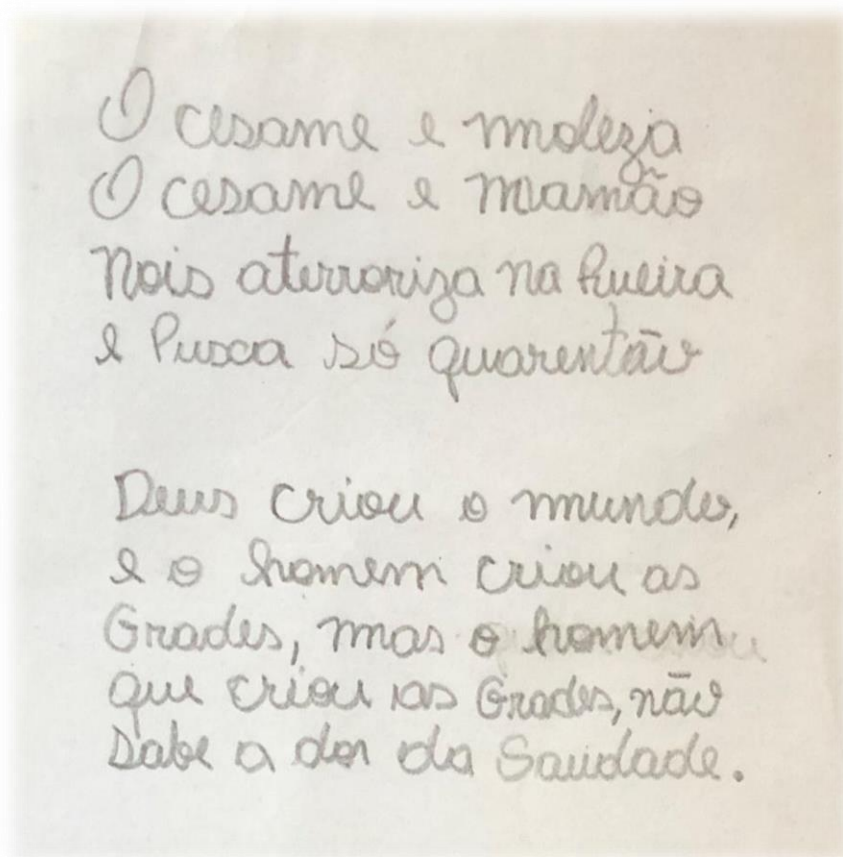 O cesame e moleza
O cesame e mamão
Nois aterroriza na hueira
e Puxa só quarentão
Deus criou o mundo,
e o homem criou as
Grades, mas o homem
que criou as Grades, não
Sabe a dor da Saudade.